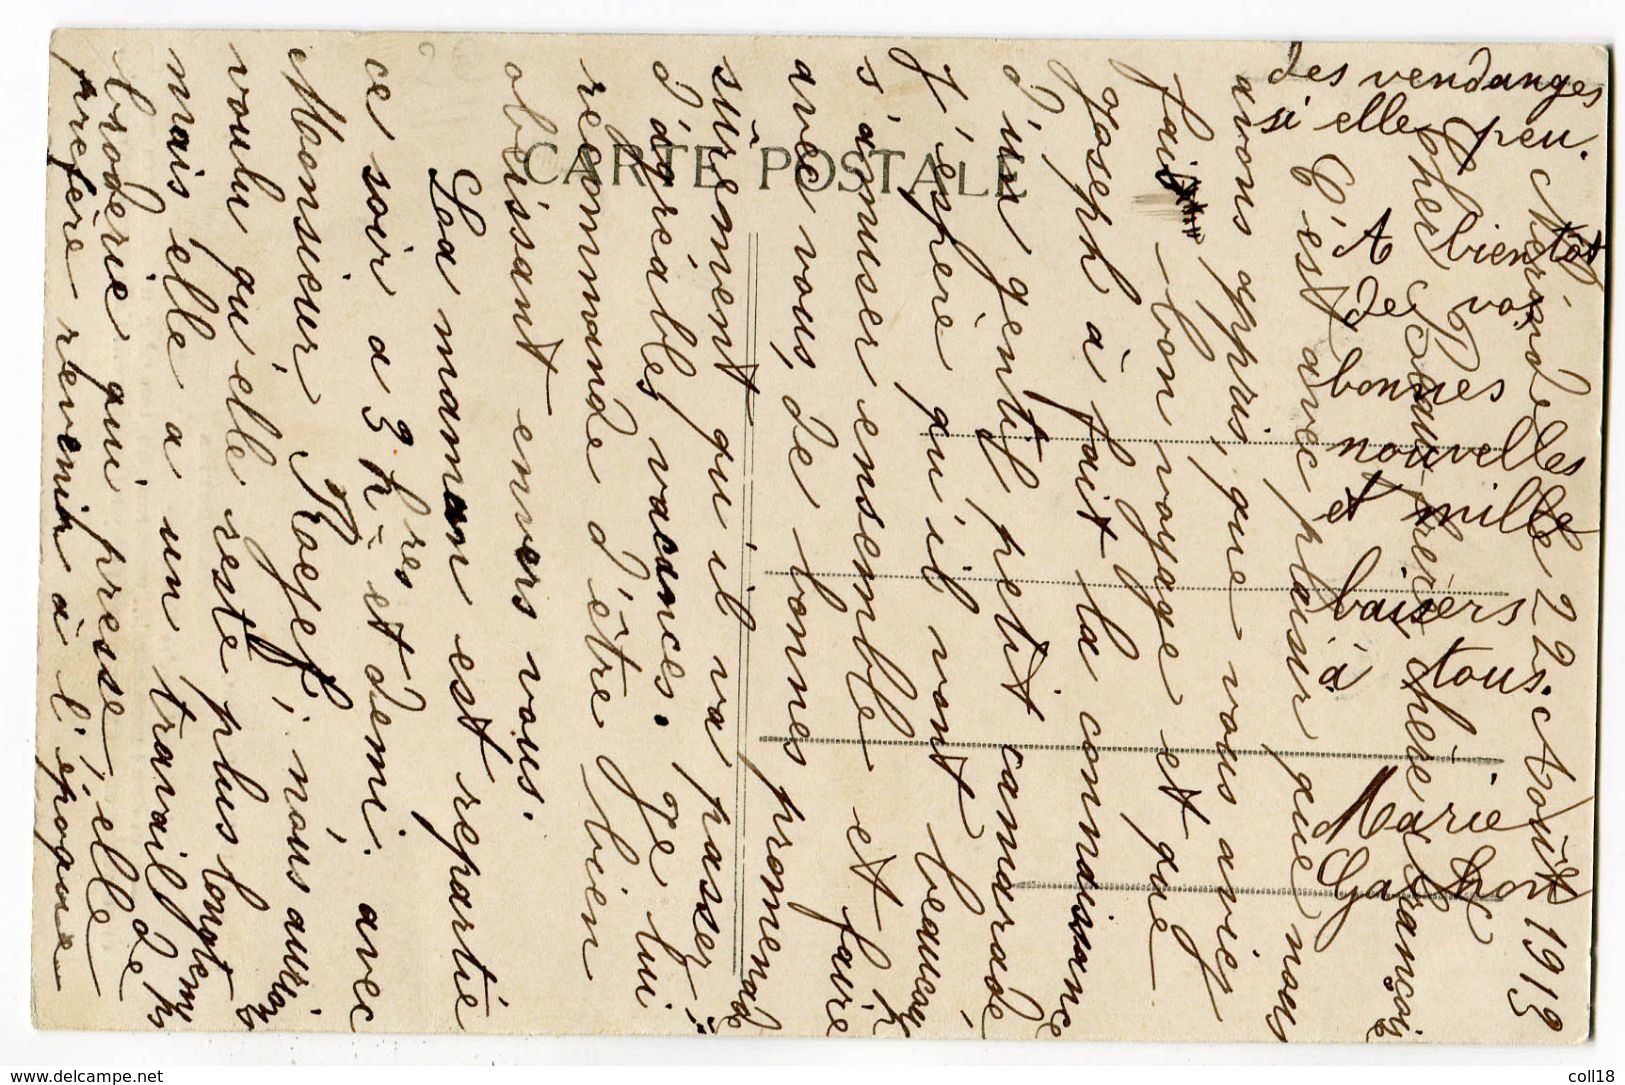 CARTE POSTALE
Mérinde 22 Août 1913
Cher Adrien, chère Françoise
C'est avec plaisir, que nous
avons appris, que vous aviez
fait bon voyage et que
Joseph à fait la connaissance
d'un gentil petit camarade
J'espère qu'il vont beaucoup
s'amuser ensemble et faire
avec vous, de bonnes promenade
sûrement qu'il va passez
d'agréables vacances. Je lui
recommande d'être bien
obeissant envers vous.
La maman est repartie
ce soir a 3 hres et demi. avec
Monsieur Rogef; nous aurions
voulu qu'elle reste plus longtemps
mais elle a un travail de
broderie qui presse; elle
prefère revenir à l'époque
des vendanges
si elle peu.
A bientôt
de vos
bonnes
nouvelles
et mille
baisers
à tous.
Marie
www.delcampe.net
coll18